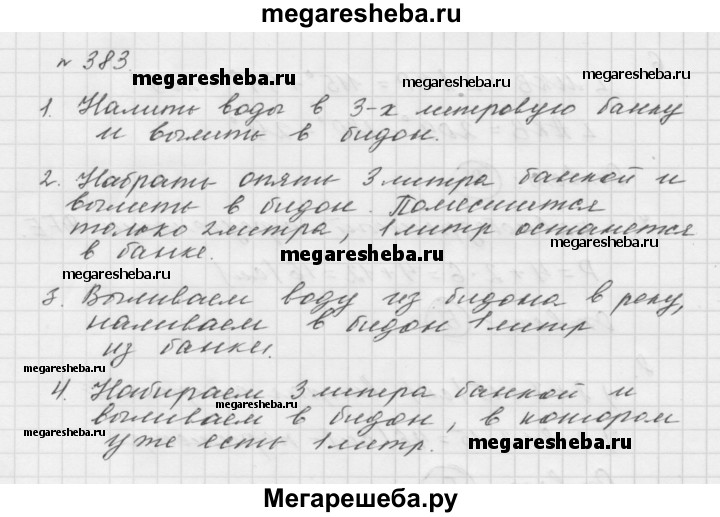 megaresheba.ru
№ 383
megaresheba.ru megaresheba.ru
1. Налить воды в 3-х литровую банку
и вылить в бидон.
2. Набрать опять 3 литра банкой и
вылить в бидон. Поместится
только 2 литра, 1 литр останется
в банке.
megaresheba.ru megaresheba.ru
3. Выливаем воду из бидона в реку,
наливаем в бидон 1 литр
из банки.
megaresheba.ru
4. Набираем 3 литра банкой и
megaresheba.ru
выливаем в бидон, в котором
уже есть 1 литр.
megaresheba.ru
megaresheba.ru
Мегарешеба.ру